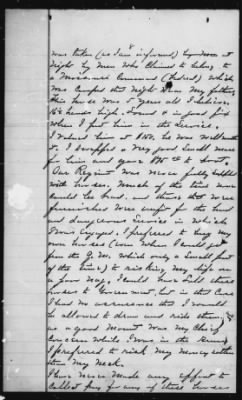 8
was taken (as I am informed) by
night by Men who Claimed to belong to
a Missouri Command (Federal) which
was Camped that night Near My fathers
This horse was 5 years old I believe.
15½ hands high, Sound & in good fix
when I put him in the Service.
I valued him at $150. he was Well worth
it. I swapped a very good Small mare
for him and gave $75 00 to boot.
Our Regiment was never fully supplied
with horses. Much of the time none
could be found, and those that were
furnished were unfit for the hard
and dangerous Service in which
I was engaged. I preferred to buy my
own horses (even When I could get
from the Q. M. which only a Small part
of the time) to risking my life on
a poor nag. I could have sold these
horses to Government but in that case
I had no assurance that I would
be allowed to draw and ride them, &
as a good Mount was My Chief
concern while I was in the Army
I preferred to risk my money rather
than My Neck.
I have never made any effort to
collect pay for any of these horses